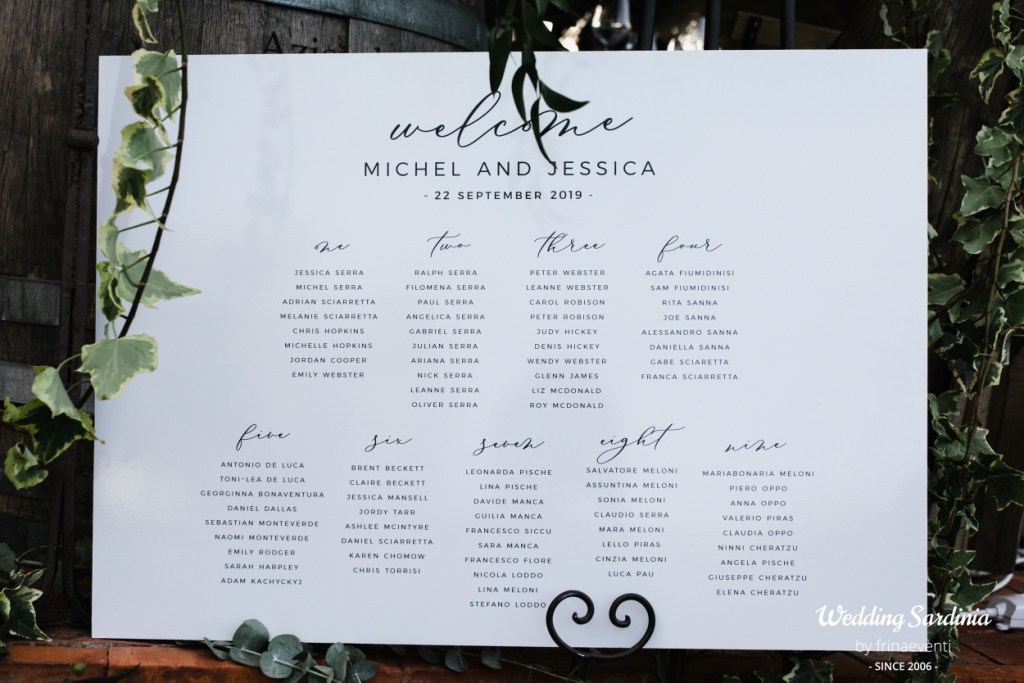 Azie
welcome
MICHEL AND JESSICA
- 22 SEPTEMBER 2019 -
one
JESSICA SERRA
MICHEL SERRA
ADRIAN SCIARRETTA
MELANIE SCIARRETTA
CHRIS HOPKINS
MICHELLE HOPKINS
JORDAN COOPER
EMILY WEBSTER
two
RALPH SERRA
FILOMENA SERRA
PAUL SERRA
ANGELICA SERRA
GABRIEL SERRA
JULIAN SERRA
ARIANA SERRA
NICK SERRA
LEANNE SERRA
OLIVER SERRA
three
PETER WEBSTER
LEANNE WEBSTER
CAROL ROBISON
PETER ROBISON
JUDY HICKEY
DENIS HICKEY
WENDY WEBSTER
GLENN JAMES
LIZ MCDONALD
ROY MCDONALD
four
AGATA FIUMIDINISI
SAM FIUMIDINISI
RITA SANNA
JOE SANNA
ALESSANDRO SANNA
DANIELLA SANNA
GABE SCIARETTA
FRANCA SCIARETTA
five
ANTONIO DE LUCA
TONI-LEA DE LUCA
GEORGINNA BONAVENTURA
DANIEL DALLAS
SEBASTIAN MONTEVERDE
NAOMI MONTEVERDE
EMILY RODGER
SARAH HARPLEY
ADAM KACHYCKYJ
six
BRENT BECKETT
CLAIRE BECKETT
JESSICA MANSELL
JORDY TARR
ASHLEE MCINTYRE
DANIEL SCIARRETTA
KAREN CHOMOW
CHRIS TORRISI
seven
LEONARDA PISCHE
LINA PISCHE
DAVIDE MANCA
GUILIA MANCA
FRANCESCO SICCU
SARA MANCA
FRANCESCO FLORE
NICOLA LODDO
LINA MELONI
STEFANO LODDO
eight
SALVATORE MELONI
ASSUNTINA MELONI
SONIA MELONI
CLAUDIO SERRA
MARA MELONI
LELLO PIRAS
CINZIA MELONI
LUCA PAU
nine
MARIABONARIA MELONI
PIERO OPPO
ANNA OPPO
VALERIO PIRAS
CLAUDIA OPPO
NINNI CHERATZU
ANGELA PISCHE
GIUSEPPE CHERATZU
ELENA CHERATZU
Wedding Sardinia
by frinaeventi
- SINCE 2006 -